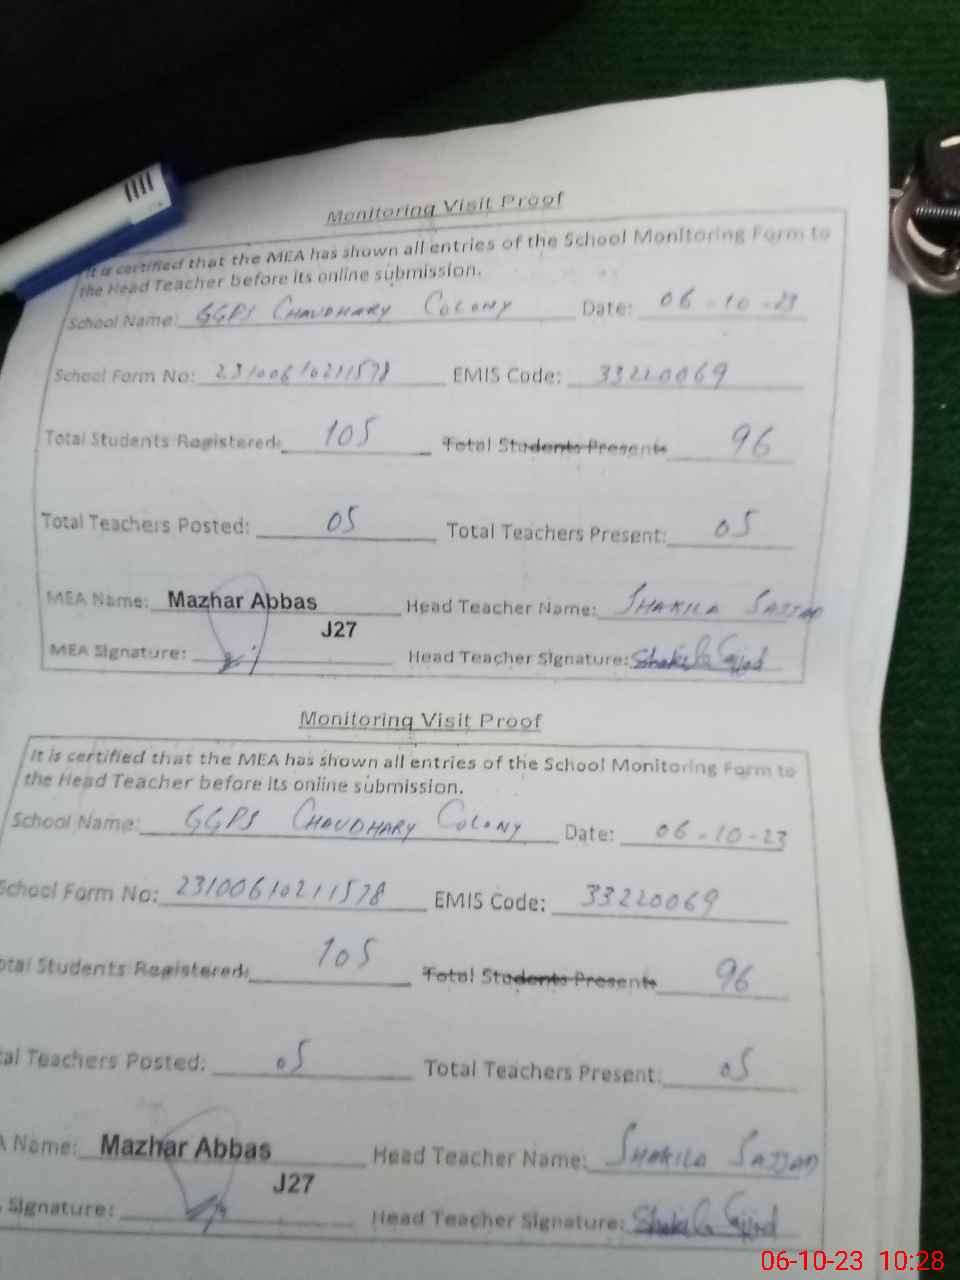 Monitoring Visit Proof
It is certified that the MEA has shown all entries of the School Monitoring Form to
the Head Teacher before its online submission.
School Name: GGPS CHAUDHARY COLONY Date: 06-10-23
School Form No: 23100610211578 EMIS Code: 33220069
Total Students Registered: 105 Total Students Present: 96
Total Teachers Posted: 05 Total Teachers Present: 05
MEA Name: Mazhar Abbas Head Teacher Name: SHAKILA SAJJAD
J27
MEA Signature: Head Teacher Signature: Shakila Sajjad
Monitoring Visit Proof
It is certified that the MEA has shown all entries of the School Monitoring Form to
the Head Teacher before its online submission.
School Name: GGPS CHAUDHARY COLONY Date: 06-10-23
School Form No: 23100610211578 EMIS Code: 33220069
otal Students Registered: 105 Total Students Present: 96
al Teachers Posted: 05 Total Teachers Present: 05
A Name: Mazhar Abbas Head Teacher Name: SHAKILA SAJJAD
J27
Signature: Head Teacher Signature: Shakila Sajjad
06-10-23 10:28